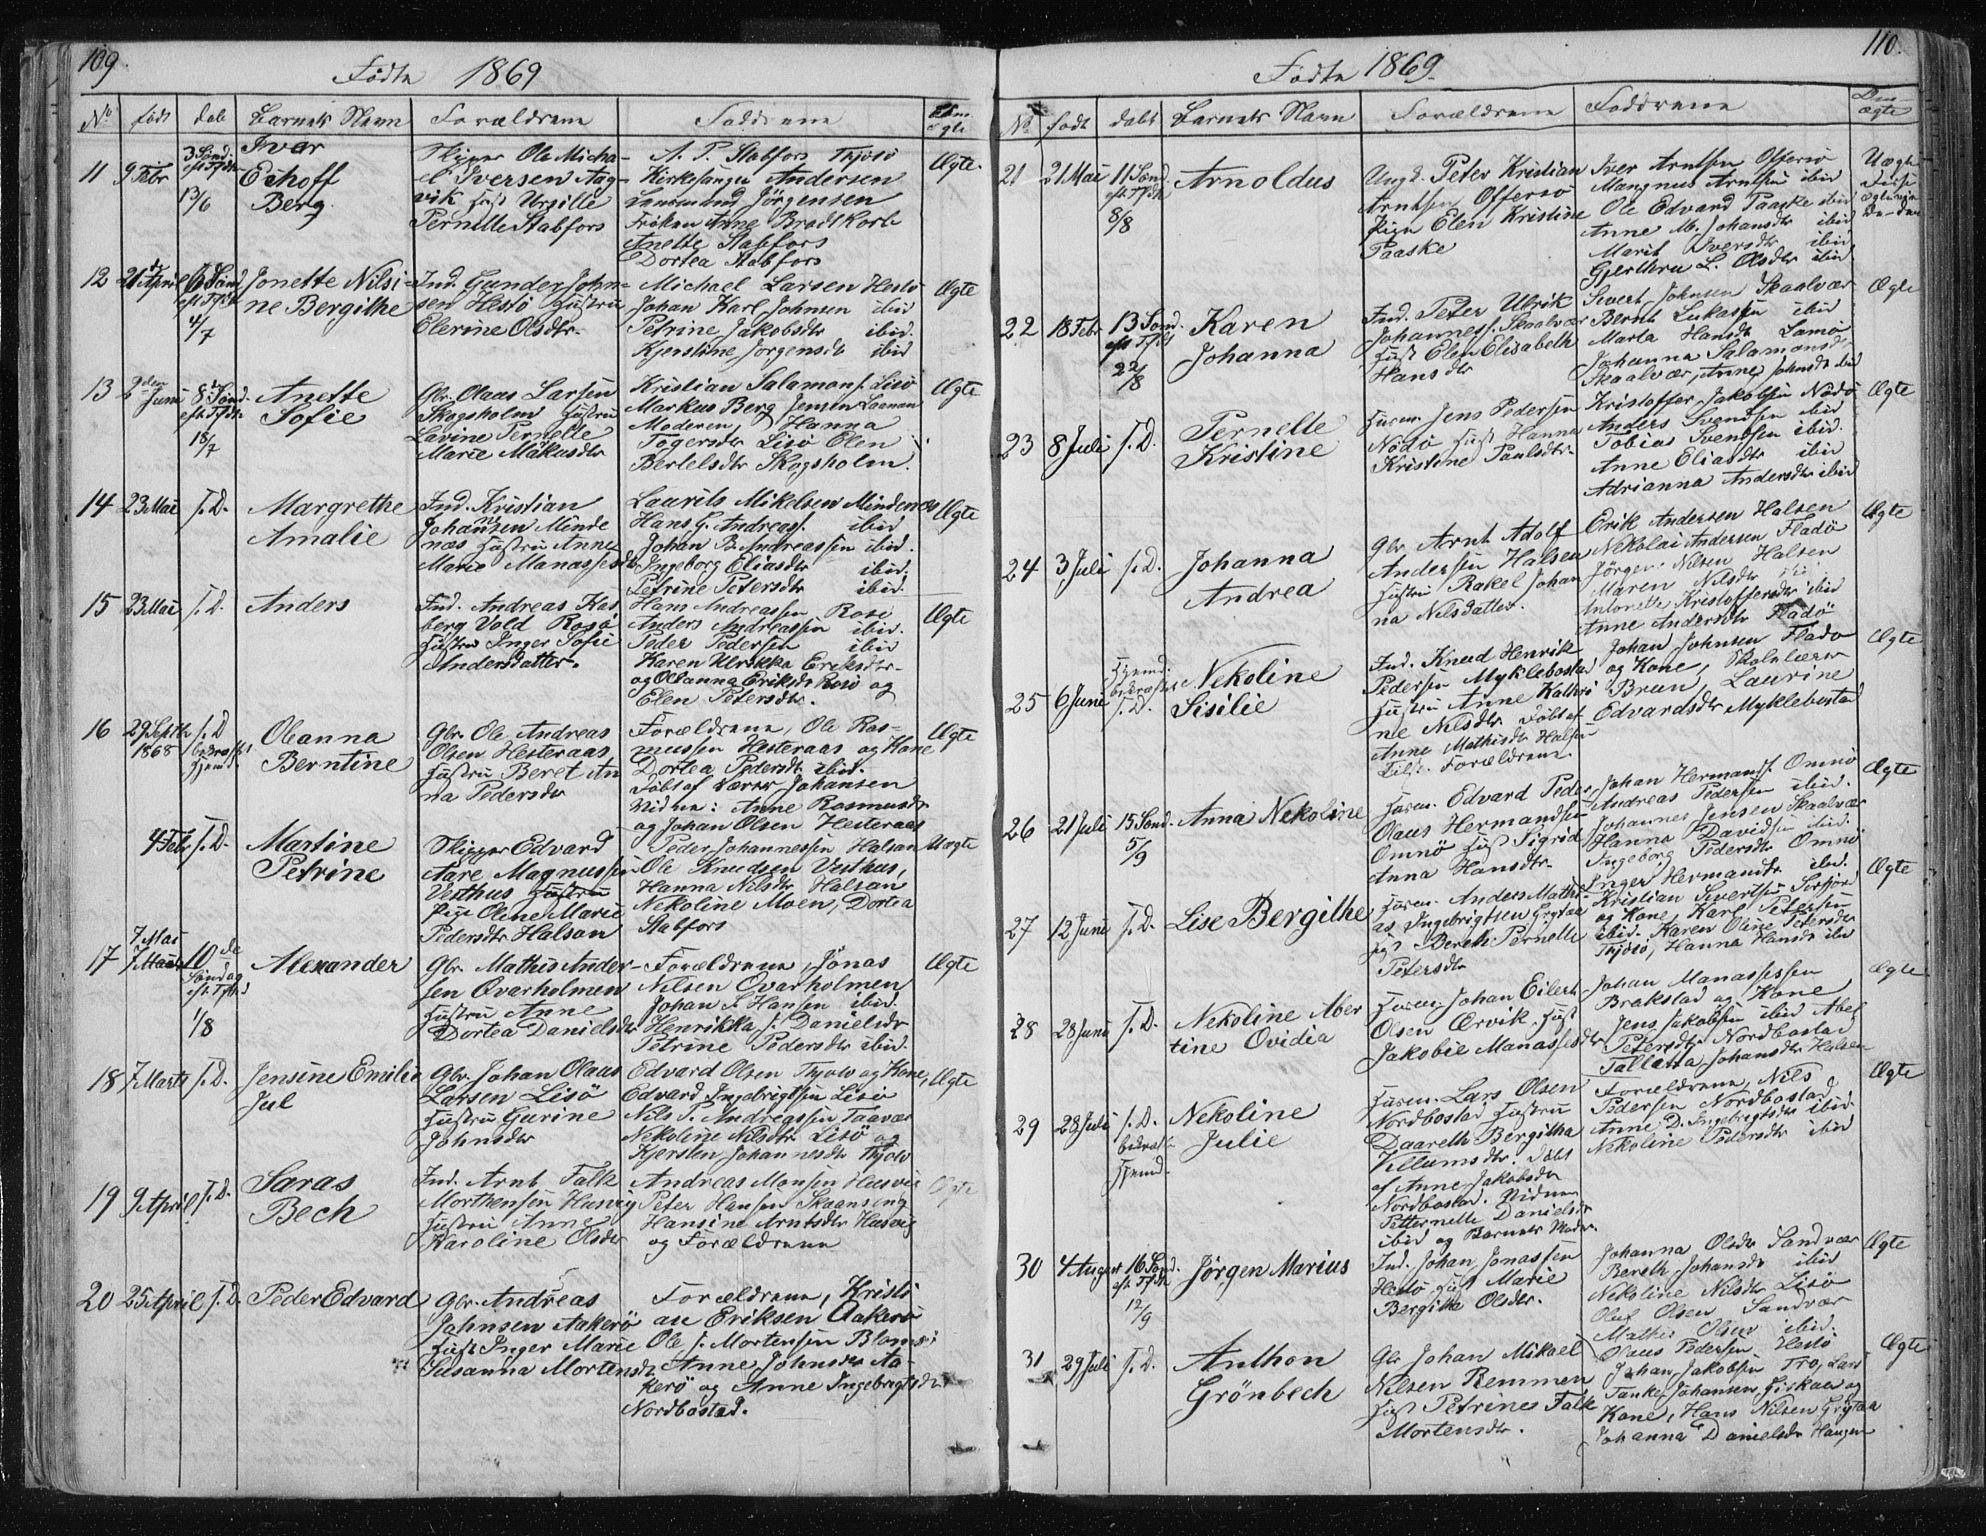 109.
Födte 1869
No födt dob Barnets Navn Forældrene Faddrene
11 9 Febr 3 Sönd. eft Tfdh 13/6 Ivar Echoff Berg.
Skipper Ole Micha-
el Iversen Aag-
vik Hust Urgille
Pernelle Stabfors
A. P. Stabfors Thjösö
Kirkesanger Andersen
Jörgensen
Fröken Anne Bradtkorb
Anette Stabfors
Dortea Stabfors
Ægte.
12 21 April 6 Sönd eft Tfdh 4/7 Jonette Nilsi-
ne Bergithe
Ind. Gunder John-
sen Hestö Hustru
Elerine Olsdtr.
Michael Larsen Hestö
Johan Karl Johnsen ibid
Petrine Jakobsdtr ibid.
Kjerstine Jörgensdt ibid
Ægte
13 2den Juni 8 Sönd eft Tfdh 18/7 Anette
Sofie
Gbr. Olaas Larsen
Skogsholm Hustru
Lavine Pernelle
Marie Markusdtr
Kristian Salamons. Lisö
Markus Berg Jensen
Moderen, Hanna
Togersdtr Lisö Elen
Bertelsdtr Skogsholm.
Ægte
14 23 Mai s. D. Margrethe
Amalie
Ind. Kristian
Johansen Minde
næs Hustru Anne
Marie Manassesdtr
Laurits Mikelsen Mindenæs
Hans G. Andreass. ibid
Johan B. Andreassen ibid.
Ingeborg Eliasdtr ibid.
Petrine Petersdtr ibid.
Ægte
15 23 Mai s. D. Anders
Ind. Andreas Kas
berg Vold Rosö
Hustru Inger Sofie
Andersdatter.
Hans Andreassen Rosö
Anders Andreassen ibid.
Peder Pedersen ibid
Karen Ulrikka Eriksdtr-
og Oleanna Eriksdt Rosö og
Elen Petersdtr.
Ægte
16 29 Septbr 1868 s. D Oleanna
Berntine
Gbr. Ole Andreas
Olsen Hesteraas
Hustru Beret An
na Pedersdtr
Forældrene, Ole Ras-
mussen Hesteraas og Kone
Dortea Pedersdtr ibid.
Döbt af Værer Johansen
Vidner: Anne Rasmusdtr
og Johan Olsen Hesteraas
Ægte
4 Febr s. D. Martine
Petrine
Skipper Edvard
Aare Magnussen
Vesthus Hustru
Pige Olene Marie
Pedersdtr Halsan
Peder Johannessen Halsan
Ole Knudsen Vesthus,
Hanna Nilsdtr Halsan
Nekoline Moen, Dortea
Stabfors
Uægte
17 7 Mai 7 Marts 10de Söndag eft Tfhd 1/8 Alexander
Gbr. Mathis Ander-
sen Qvarholmen
Hustru Anne
Dortea Danielsdtr
Forældrene, Jonas
Nilsen Qvarholmen
Johan S. Hansen ibid.
Henrikka s. Danielsdtr
Petrine Pedersdtr ibid.
Ægte
18 7 Marts s. D. Jensine Emilie
Jul
Gbr. Johan Olaus
Larsen Lisö
Hustru Gurine
Johnsdtr
Edvard Olsen Thjolö og Kone,
Edvard Ingebrigtsen Lisö
Nils P. Andreassen Taavær
Nekoline Nilsdtr Lisö og
Kjersten Johannesdtr Thjolö
Ægte
19 9 April s. D. Saras
Bech
Ind. Arnt Falk
Morthensen Husvig
Hustru Anne
Karoline Olsdtr
Andreas Monsen Husvig
Peter Hansen Skaanseng
Hansine Arntsdtr Husvig
og Forældrene
Ægte
20 25 April s. D. Peder Edvard
Gbr. Andreas
Johnsen Aakerö
Hust Inger Marie
Susanna Mortensdt
Forældrene, Kristi
an Eriksen Aakerö
Ole s. Mortensen Blomsö
Anne Johnsdtr Aa-
kerö og Anne Ingebrigtsdtr
Nordbostad.
110.
Födte 1869.
No födt dobt Barnets Navn Forældrene Faddrene Om ægte
21 21 Mai 11 Sönd eft Tfdh 8/8 Arnoldus
Ungk. Peter Kristian
Arntsen Offersö
Pige Elen Kristine
Paaske
Iver Arntsen Offersö
Mangnus Arntsen ibid
Ole Edvard Paaske ibid
Anne M. Johansdtr ibid
Marit Iversdtr ibid
Gjerthru L. Olsdtr ibid
Uægte
22 18 Febr 13 Sönd. eft Tfdt 22/8 Karen
Johanna
Ind. Peter Ulrik
Johanness. Skaalvær
Hust Elen Elisabeth
Hansdtr
Sivert Johnsen Skaalvær
Bernt Lukassen ibid
Marta Hansdt Lamö
Johanna Salamonsdtr
Skaalvær, Anne Johnsdt ibid
Ægte
23 8 Juli s. D. Pernelle
Kristine
Husm. Jens Pedersen
Nödö Hust Hanna
Kristine Paulsdtr.
Kristoffer Jakobsen Nödö
Anders Svendsen ibid
Tobias Svendsen ibid.
Anne Eliasdtr ibid
Adrianna Andersdtr ibid
Ægte
24 3 Juli s. D. Johanna
Andrea
Gbr. Arnt Adolf
Andersen Halsen
Hustru Rakel Johan
na Nilsdatter.
Erik Andersen Halsen
Nekolai Andersen Fladö
Jörgen Nilsen Halsen
Maren Nilsdtr ibid
Antonette Kristoffersdtr ibid
Anne Andersdtr Fladö
Ægte
25 6 Juni s. D. Nekoline
Sisilie
Ind. Knud Henrik
Pedersen Myklebostad
Hustru Anne Kathri
ne Nilsdtr Döbt af
Anne Mathisdtr Halsen
Tilst. Forældrene.
Johan Johnsen Fladö
og Kone, Skolelærer
Brun, Laurine
Edvardsdtr Myklebostad
Ægte
26 21 Juli 15 Sönd. 5/9 Anna Nekoline
Husm. Edvard Peder
Olaus Hermandsen
Omnö Hust Sigrid
Anna Hansdtr.
Johan Hermans. Omnö
Andreas Pedersen ibid.
Johannes Jensen Skaalvær
Hanna Davidsen ibid.
Ingeborg Pedersdtr Omnö
Inger Hermandtr ibid.
Ægte
27 12 Juni s. D. Lise Bergithe
Husm. Anders Mathi-
as Ingebrigtsen Grytaa
Hust Bereth Pernelle
Petersdtr
Kristian Sivertsen Sörfjor
og Kone, Karl Petersen
ibid. Karen Oline Petersdtr
Thjösö, Hanna Hansdt ibid
Ægte
28 28 Juni s. D. Nekoline Aber
tine Ovidia
Husm. Johan Eilert
Olsen Ærvik, Hust
Jakobie Manassesdtr
Johan Manassessen
Brakstad og Kone
Jens Jakobsen ibid Abel
Petersdtr Nordbostad
Talletta Johansdtr Halsen
Ægte
29 28 Juli s. D. Nekoline
Julie
Husm. Lars Olsen
Nordbostad Hustru
Daareth Bergitha
Villumsdtr. Döbt
af Anne Jakobsdtr
Nordbostad. Vidner
Petternelle Danielsdtr
ibid og Barnets Moder.
Forældrene, Nils
Pedersen Nordbostad
Anne D. Ingebrigtsdtr ibid.
Nekoline Pedersdtr ibid
Ægte
30 4 August 16 Sönd. eft Tfdh 12/9 Jörgen Marius
Ind. Johan Jonassen
Hestö Hust Marie
Bergitha Olsdtr.
Johanna Olsdtr Sandvær
Bereth Johansdt ibid
Nekoline Nilsdtr Lisö
Oluf Olsen Sandvær
Mathis Olsen ibid.
Olaus Pedersen Hestö
Ægte
31 29 Juli s. D. Anthon
Grönbech
Gbr Johan Mikael
Nilsen Remmen
Hust Petrines Falk
Mortensdtr.
Johan Jakobsen Tro, Lars
Tanke Johansen Giskaa og
Kone, Hans Nilsen Grytaa
Johanna Danielsdtr Haugen
Ægte